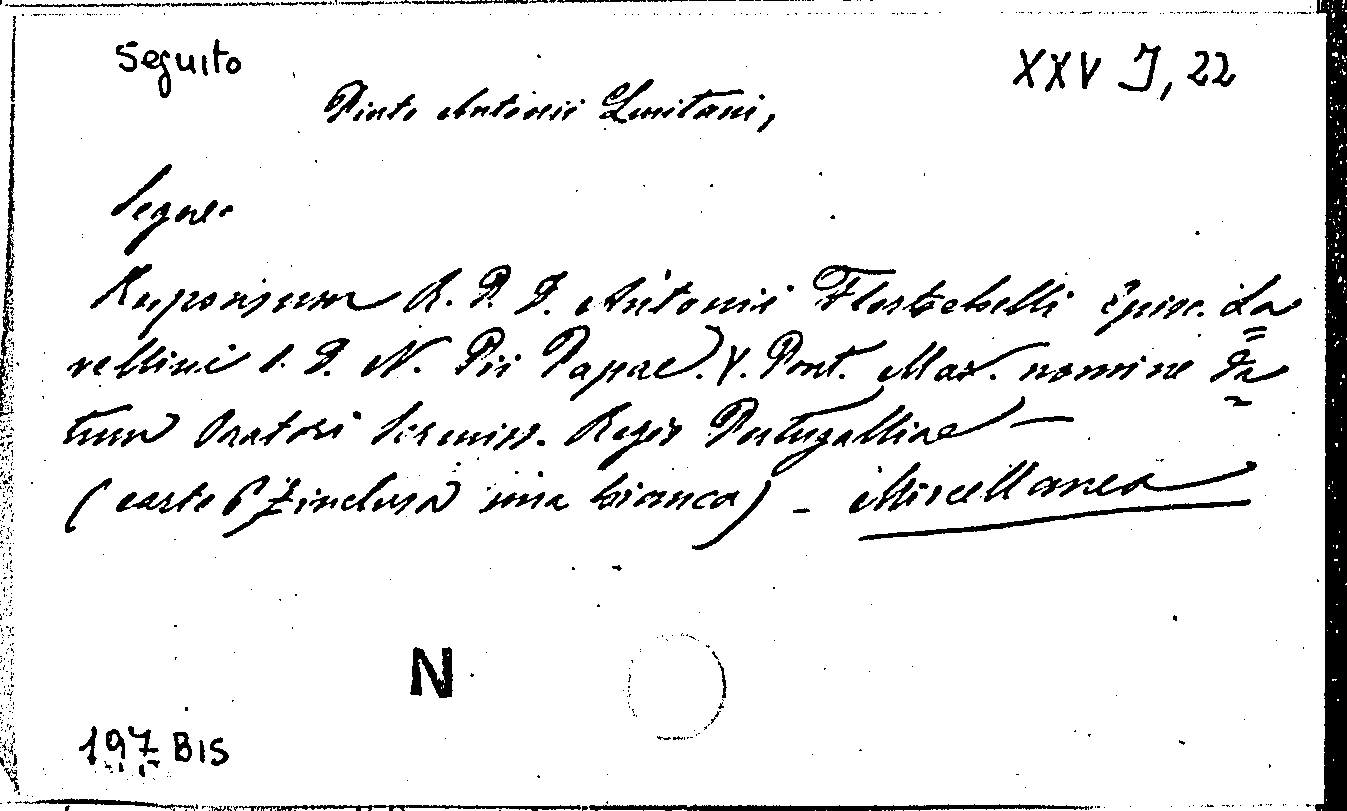 Seguito
XXV J, 22
Pinto Antonii Lusitani,
Segue
Responsum R. P. D. Antonii Florebelli Episc. La
vellini S. D. N. Pii Papae. V. Pont. Max. nomine da
tum Oratori Sereniss. Regis Portugalliae —
(carte inclusa una bianca) - Miscellanea
N
197 BIS